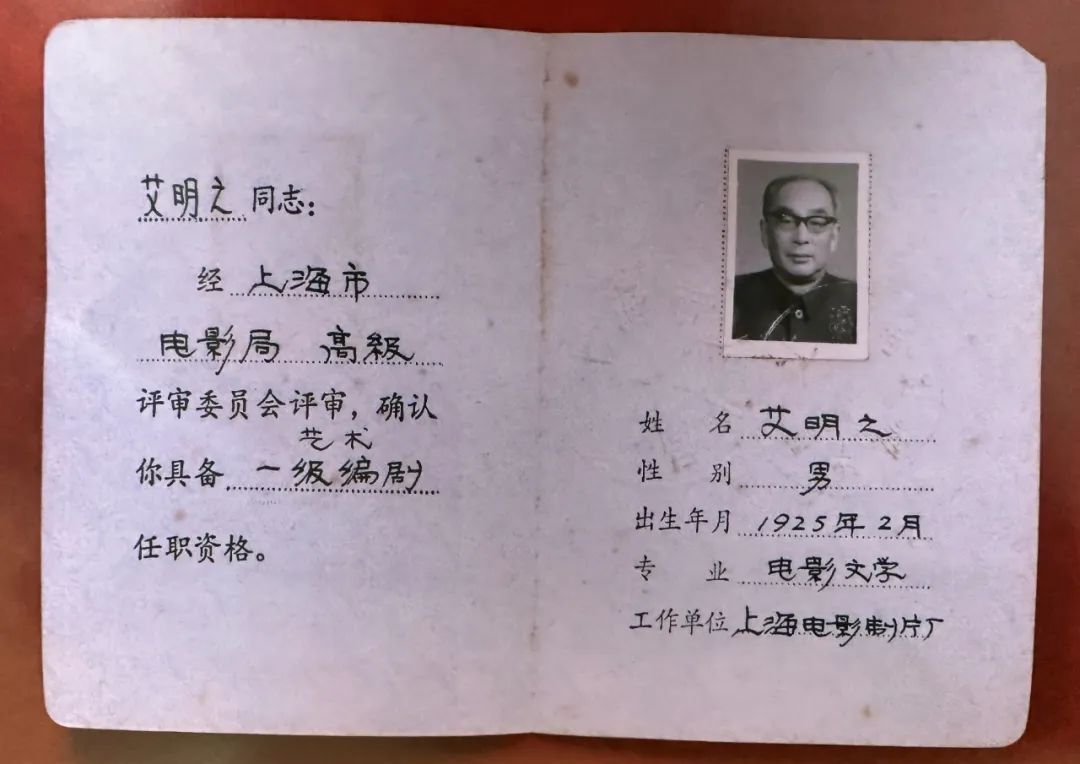 艾明之同志：
经上海市
电影局 高級
评审委员会评审，确认
艺术
你具备一级编剧
任职资格。
姓 名 艾明之
性 别 男
出生年月 1925年2月
专 业 电影文学
工作单位 上海电影制片厂